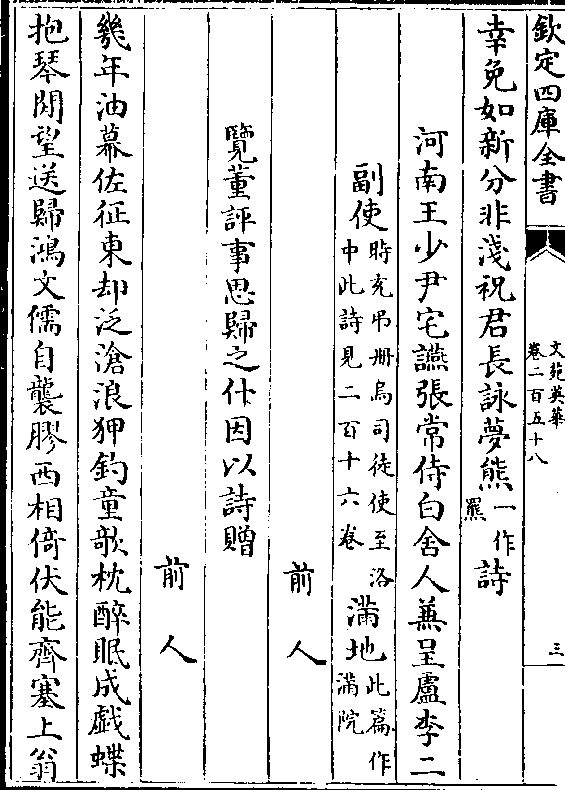 欽定四庫全書
文苑英華
卷二百五十八
三
幸免如新分非淺祝君長詠夢熊一作羆詩
河南王少尹宅讌張常侍白舍人兼呈盧李二
副使時充弔冊烏司徒使至洛中此詩見二百十六卷滿地此篇作滿院
前人
覽董評事思歸之什因以詩贈
前人
幾年油幕佐征東却泛滄浪狎釣童歌枕醉眠成戯蝶
抱琴閑望送歸鴻文儒自襲膠西相倚伏能齊塞上翁